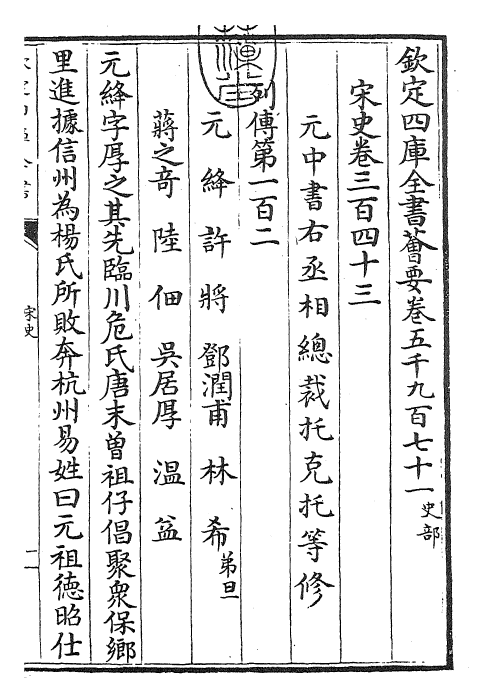 欽定四庫全書薈要卷五千九百七十一史部
宋史卷三百四十三
元中書右丞相總裁托克托等修
列傳第一百二
元絳 許將 鄧潤甫 林希弟旦
蔣之奇 陸佃 吳居厚 溫益
元絳字厚之其先臨川危氏唐末曾祖仔倡聚衆保鄉
里進據信州為楊氏所敗奔杭州易姓曰元祖德昭仕
宋史